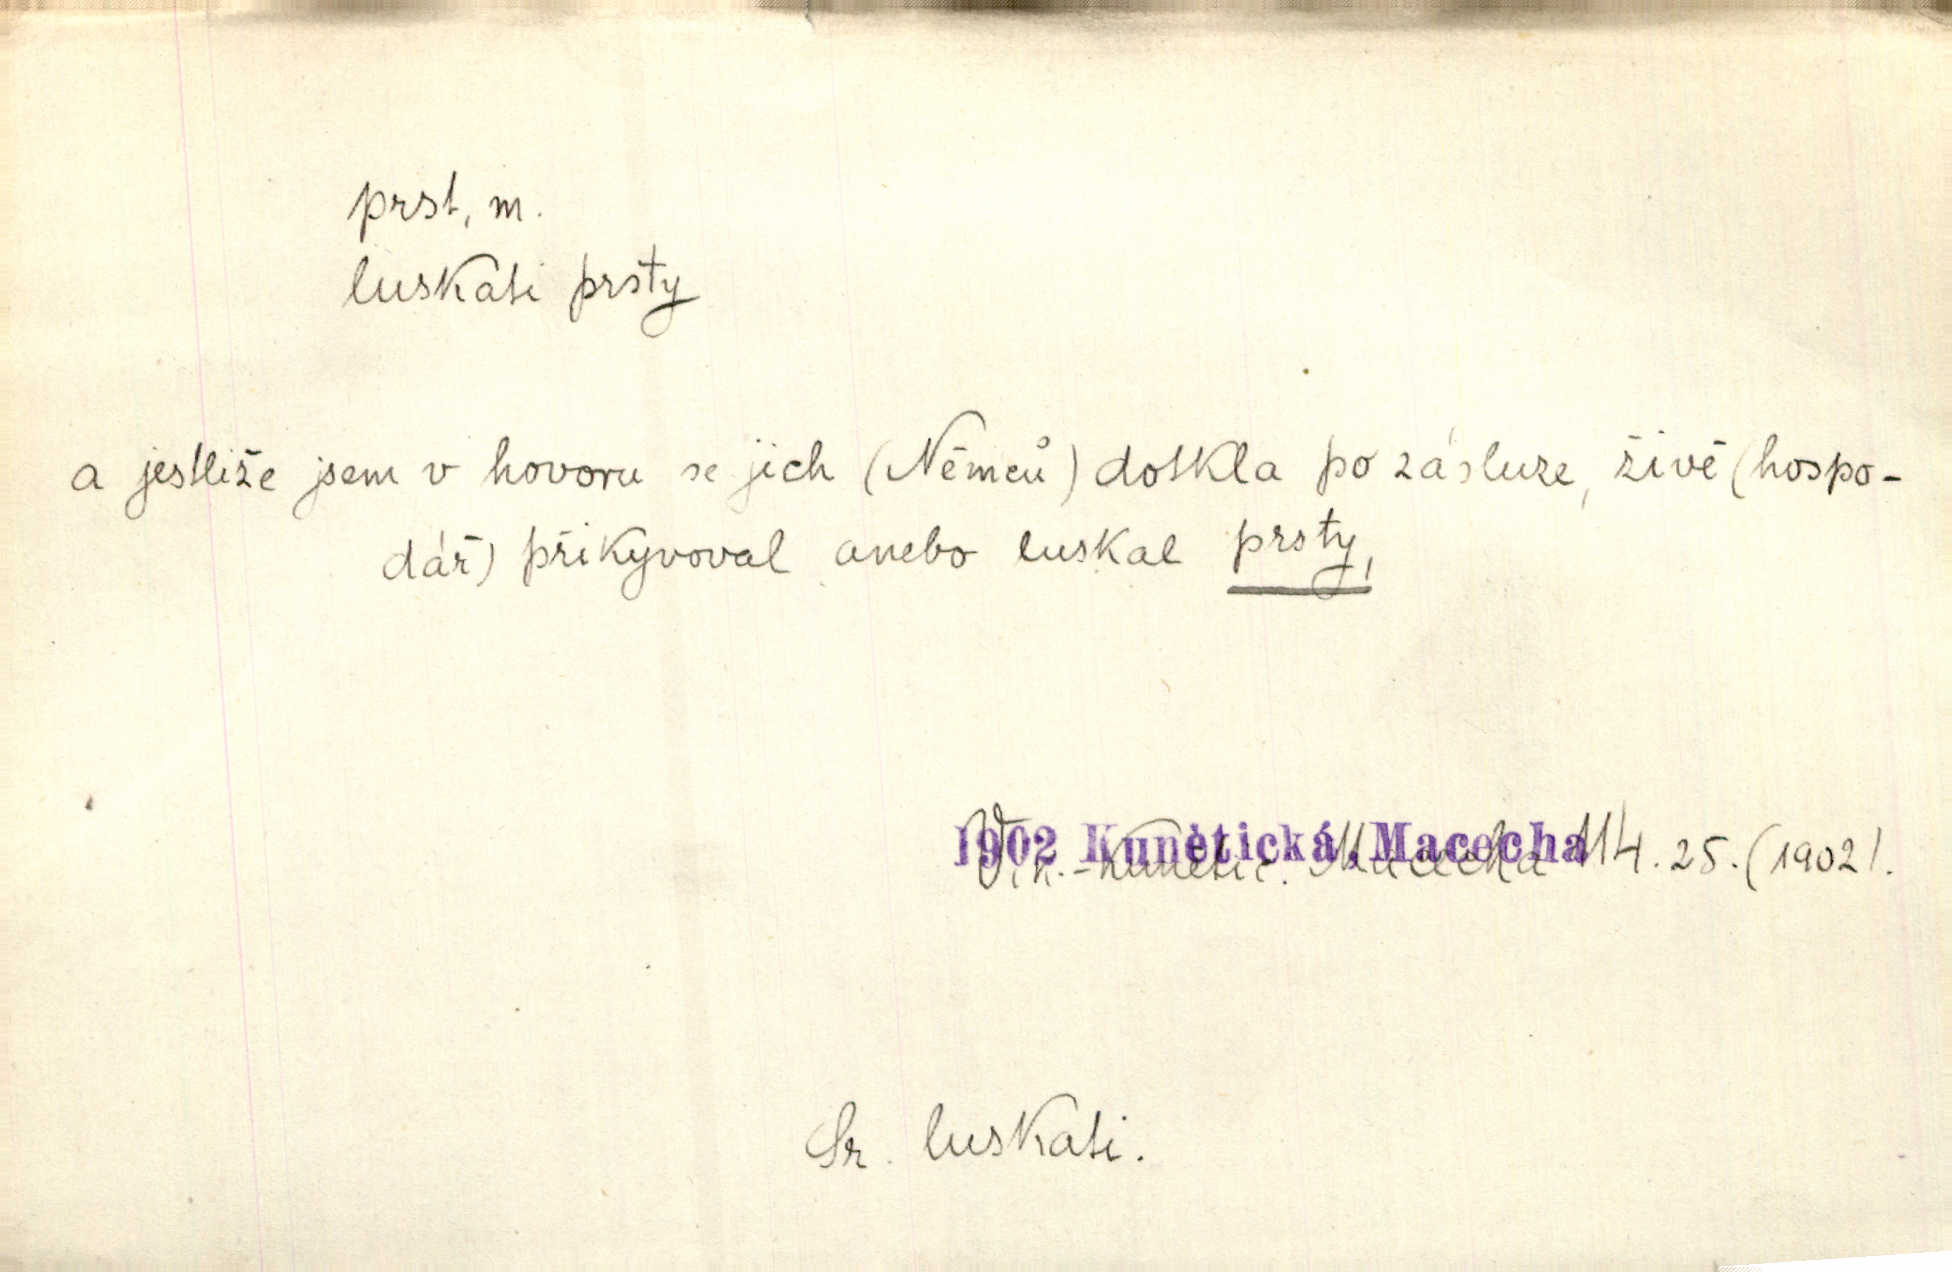 prst, m.
luskati prsty
a jestliže jsem v hovoru se jich (Němců) dotkla po zásluze, živě (hospo-
dář) přikyvoval anebo luskal prsty,
1902 Kunětická, Macecha
Vik. - Kunětic. Macecha 114. 25. (1902).
Sr. luskati.